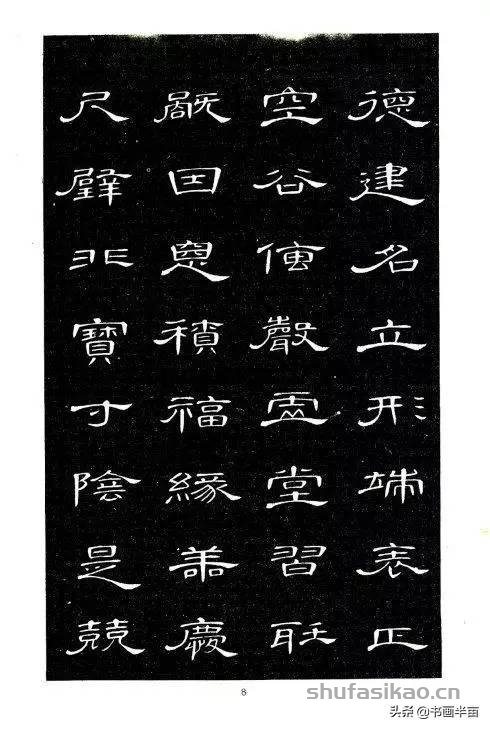 德建名立形端表正
空谷傳聲虛堂習聽
旤因惡積福緣善慶
尺璧非寶寸陰是競
8
shufasikao.cn
头条@书画半亩